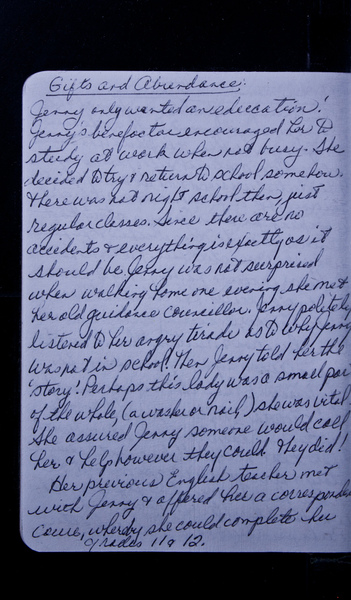 Gifts and Abundance:
Jenny only wanted an education!
Jenny's benefactor encouraged her to
study at work when not busy. She
decided to try & return to school somehow.
There was not night school then, just
regular classes. Since there are no
accidents & everything is exactly as it
should be, Jenny was not surprised
when walking home one evening she met
her old guidance councillor. Jenny politely
listened to her angry tirade as to why Jenny
was not in school! Then Jenny told her the
'story'! Perhaps this lady was a small par
of the whole, (a washer or nail) she was vital.
She assured Jenny someone would call
her & help however they could. They did!
Her previous English teacher met
with Jenny & offered her a corresponden
course, whereby she could complete her
grades 11 & 12.